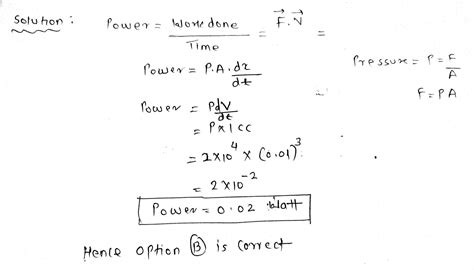 Solution : Power = Work done / Time = F⃗.V⃗ =
Power = P.A. dx/dt
Pressure = P = F/A
F = PA
Power = P dV/dt
= P x 1 cc
= 2x10⁴ x (0.01)³
= 2x10⁻²
Power = 0.02 Watt
Hence option (B) is correct